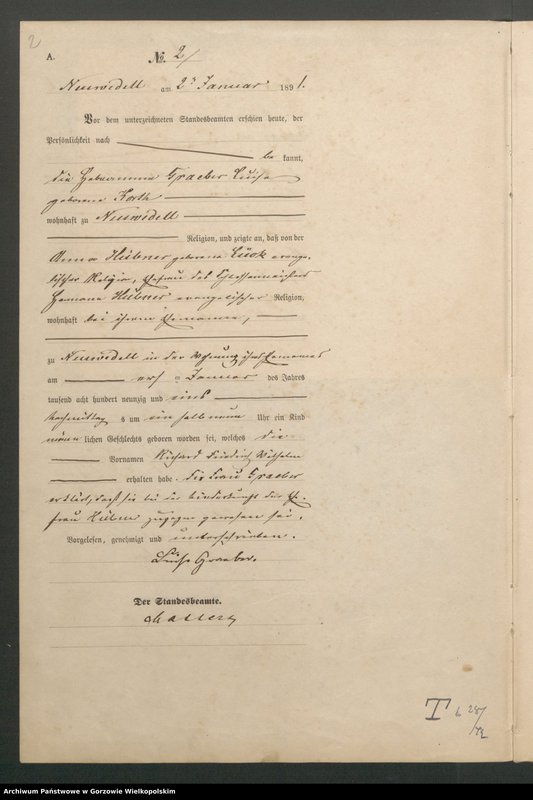 2
A.
No. 2
Neuwedell am 2n Januar 1891.
Vor dem unterzeichneten Standesbeamten erschien heute, der
Persönlichkeit nach
be kannt,
die Hebeamme Graeber Luise
geborene Korth
wohnhaft zu Neuwedell
Religion, und zeigte an, daß von der
Anna Hübner geborene Lück evange-
lischer Religion, Ehefrau des
Hermann Hübner evangelischer Religion,
wohnhaft bei ihrem Ehemanne,
zu Neuwedell in der Wohnung ihres Ehemannes
am ersten Januar des Jahres
tausend acht hundert neunzig und eins
Nachmittags um ein halb neun Uhr ein Kind
männ lichen Geschlechts geboren worden sei, welches die
Vornamen Richard Friedrich Wilhelm
erhalten habe. Die Frau Graeber
erklärt, daß sie bei der Niederkunft der Ehe-
frau Hübner zugegen gewesen sei.
Vorgelesen, genehmigt und unterschrieben.
Luise Graeber.
Der Standesbeamte.
T b 28/72
Archiwum Państwowe w Gorzowie Wielkopolskim